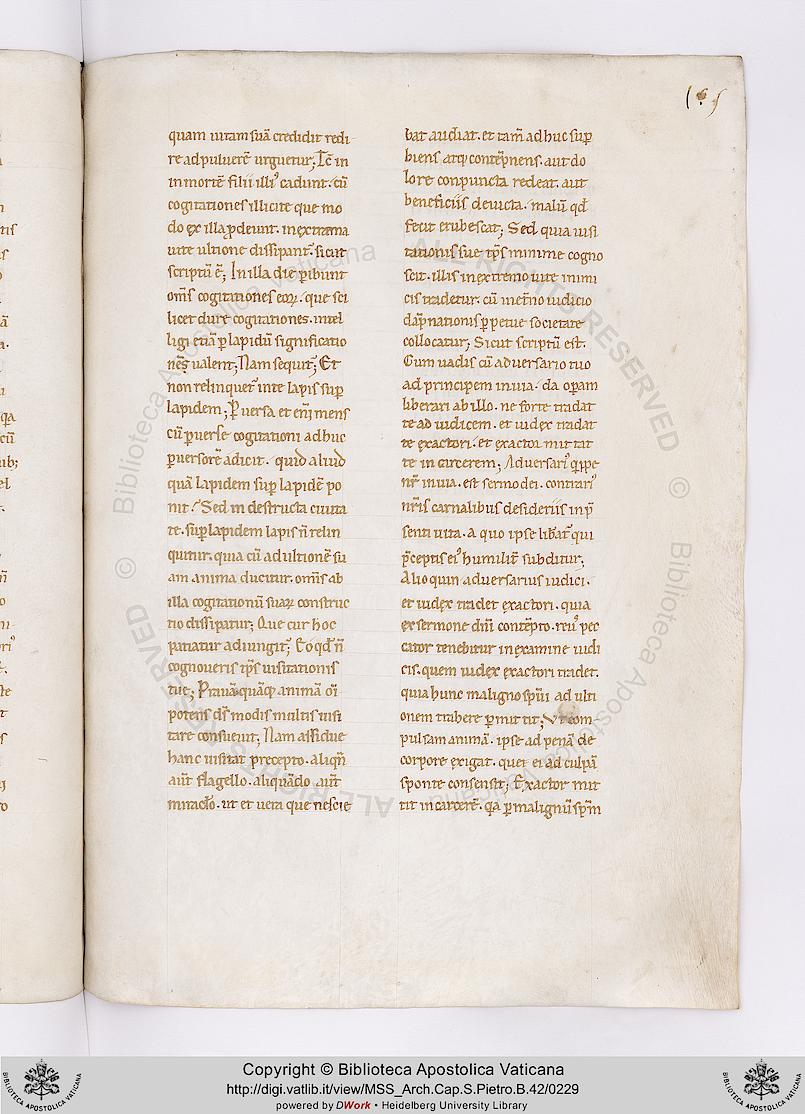 quam uitam suā credidit redi-
re ad puluerē urguetur; Tc̄ in
in mortē filii illiꝰ cadunt. cū
cogitationes illicite que mo
do ex illa ꝓdeunt. in extrema
uite ultione dissipant᷑. sicut
scriptū ē; In illa die ꝑibunt
om̄s cogitationes eoꝝ. que sci
licet dure cogitationes. intel
ligi etiā ꝑ lapidū significatio
nēs ualent; Nam sequit᷑; Et
non relinquet᷑ in te lapis suꝑ
lapidem; Ꝑuersa et eni mens
cū ꝑuerse cogitationi adhuc
ꝑuersorē adicit. quid aliud
quā lapidem suꝑ lapidē po
nit; Sed in destructa ciuita
te. suꝑ lapidem lapis n̄ relin
quitur. quia cū ad ultionē su
am anima ducitur. om̄s ab
illa cogitationū suaꝝ construc
tio dissipatur; Que cur hoc
patiatur adiungit᷑; Eo qd̄ n̄
cognoueris tp̄s uisitationis
tue; Prauā quāqꝫ animā oī
potens ds̄ modis multis uisi
tare consueuit; Nam assidue
hanc uisitat precepto. aliqn̄
aūt flagello. aliquādo aūt
miraclo. ut et uera que nescie
bat audiat. et tam̄ adhuc suꝑ
biens atqꝫ contēpnens. aut do
lore conpuncta redeat. aut
beneficiis deuicta. malū qd̄
fecit erubescat; Sed quia uisi
tationis sue tp̄s minime cogno
scit. illis in extremo uite inimi
cis tradetur. cū in et᷑no iudicio
dāpnationis ꝑpetue societate
collocatur; Sicut scriptū est.
Cum uadis cū aduersario tuo
ad principem in uia. da oꝑam
liberari ab illo. ne forte tradat
te ad iudicem. et iudex tradat
te exactori. et exactor mittat
te in carcerem; Aduersariꝰ q̄ppe
nr̄ in uia. est sermo dei. contrariꝰ
nr̄is carnalibus desideriis in p̄
senti uita. a quo ipse libat᷑ qui
p̄ceptis eiꝰ humilit᷑ subditur;
Alioquin aduersarius iudici.
et iudex tradet exactori. quia
ex sermone dn̄i contēpto. reuꝰ pec
cator tenebitur in examine iudi
cis. quem iudex exactori tradet.
quia hunc maligno spū̄i ad ulti
onem trahere ꝑmittit; Ut com-
pulsam animā. ipse ad penā de
corpore exigat. que ei ad culpā
sponte consensit; Exactor mit
tit in carcerē. qa ꝑ malignū sp̄m
Copyright © Biblioteca Apostolica Vaticana
http://digi.vatlib.it/view/MSS_Arch.Cap.S.Pietro.B.42/0229
powered by DWork • Heidelberg University Library